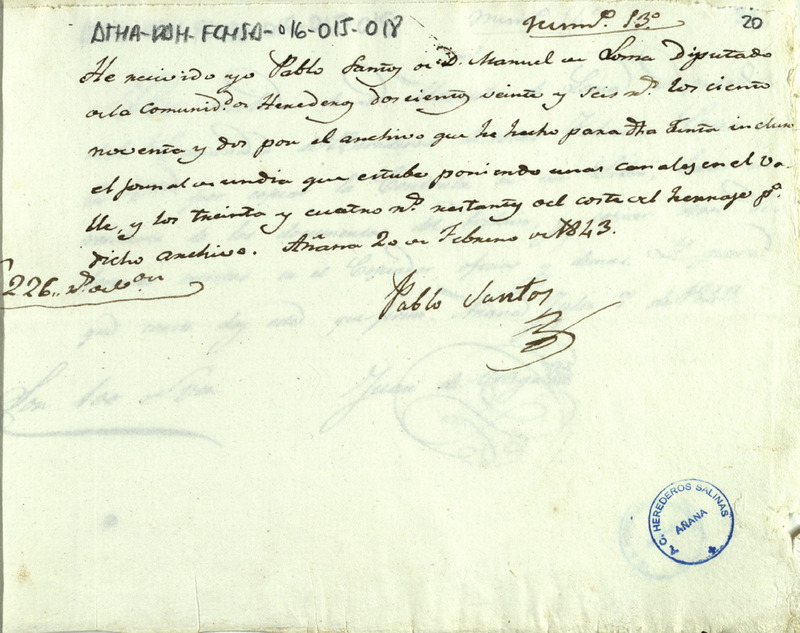 ATHA-DAH-FCHSA-016-015-018
Numº. 13º
20
He recivido yo Pablo Santos de D. Manuel de Loma Diputado
de la Comunidd. de Herederos doscientos veinte y seis rs. los ciento
noventa y dos por el archivo que he hecho para dha Junta inclusu
el jornal de un dia que estube poniendo unas canales en el Va-
lle, y los treinta y cuatro rs. restantes del coste del herraje pa.
dicho archivo. Añana 20 de Febrero de 1843.
226,, rs. de von
Pablo Santos
A. C. HEREDEROS SALINAS
AÑANA